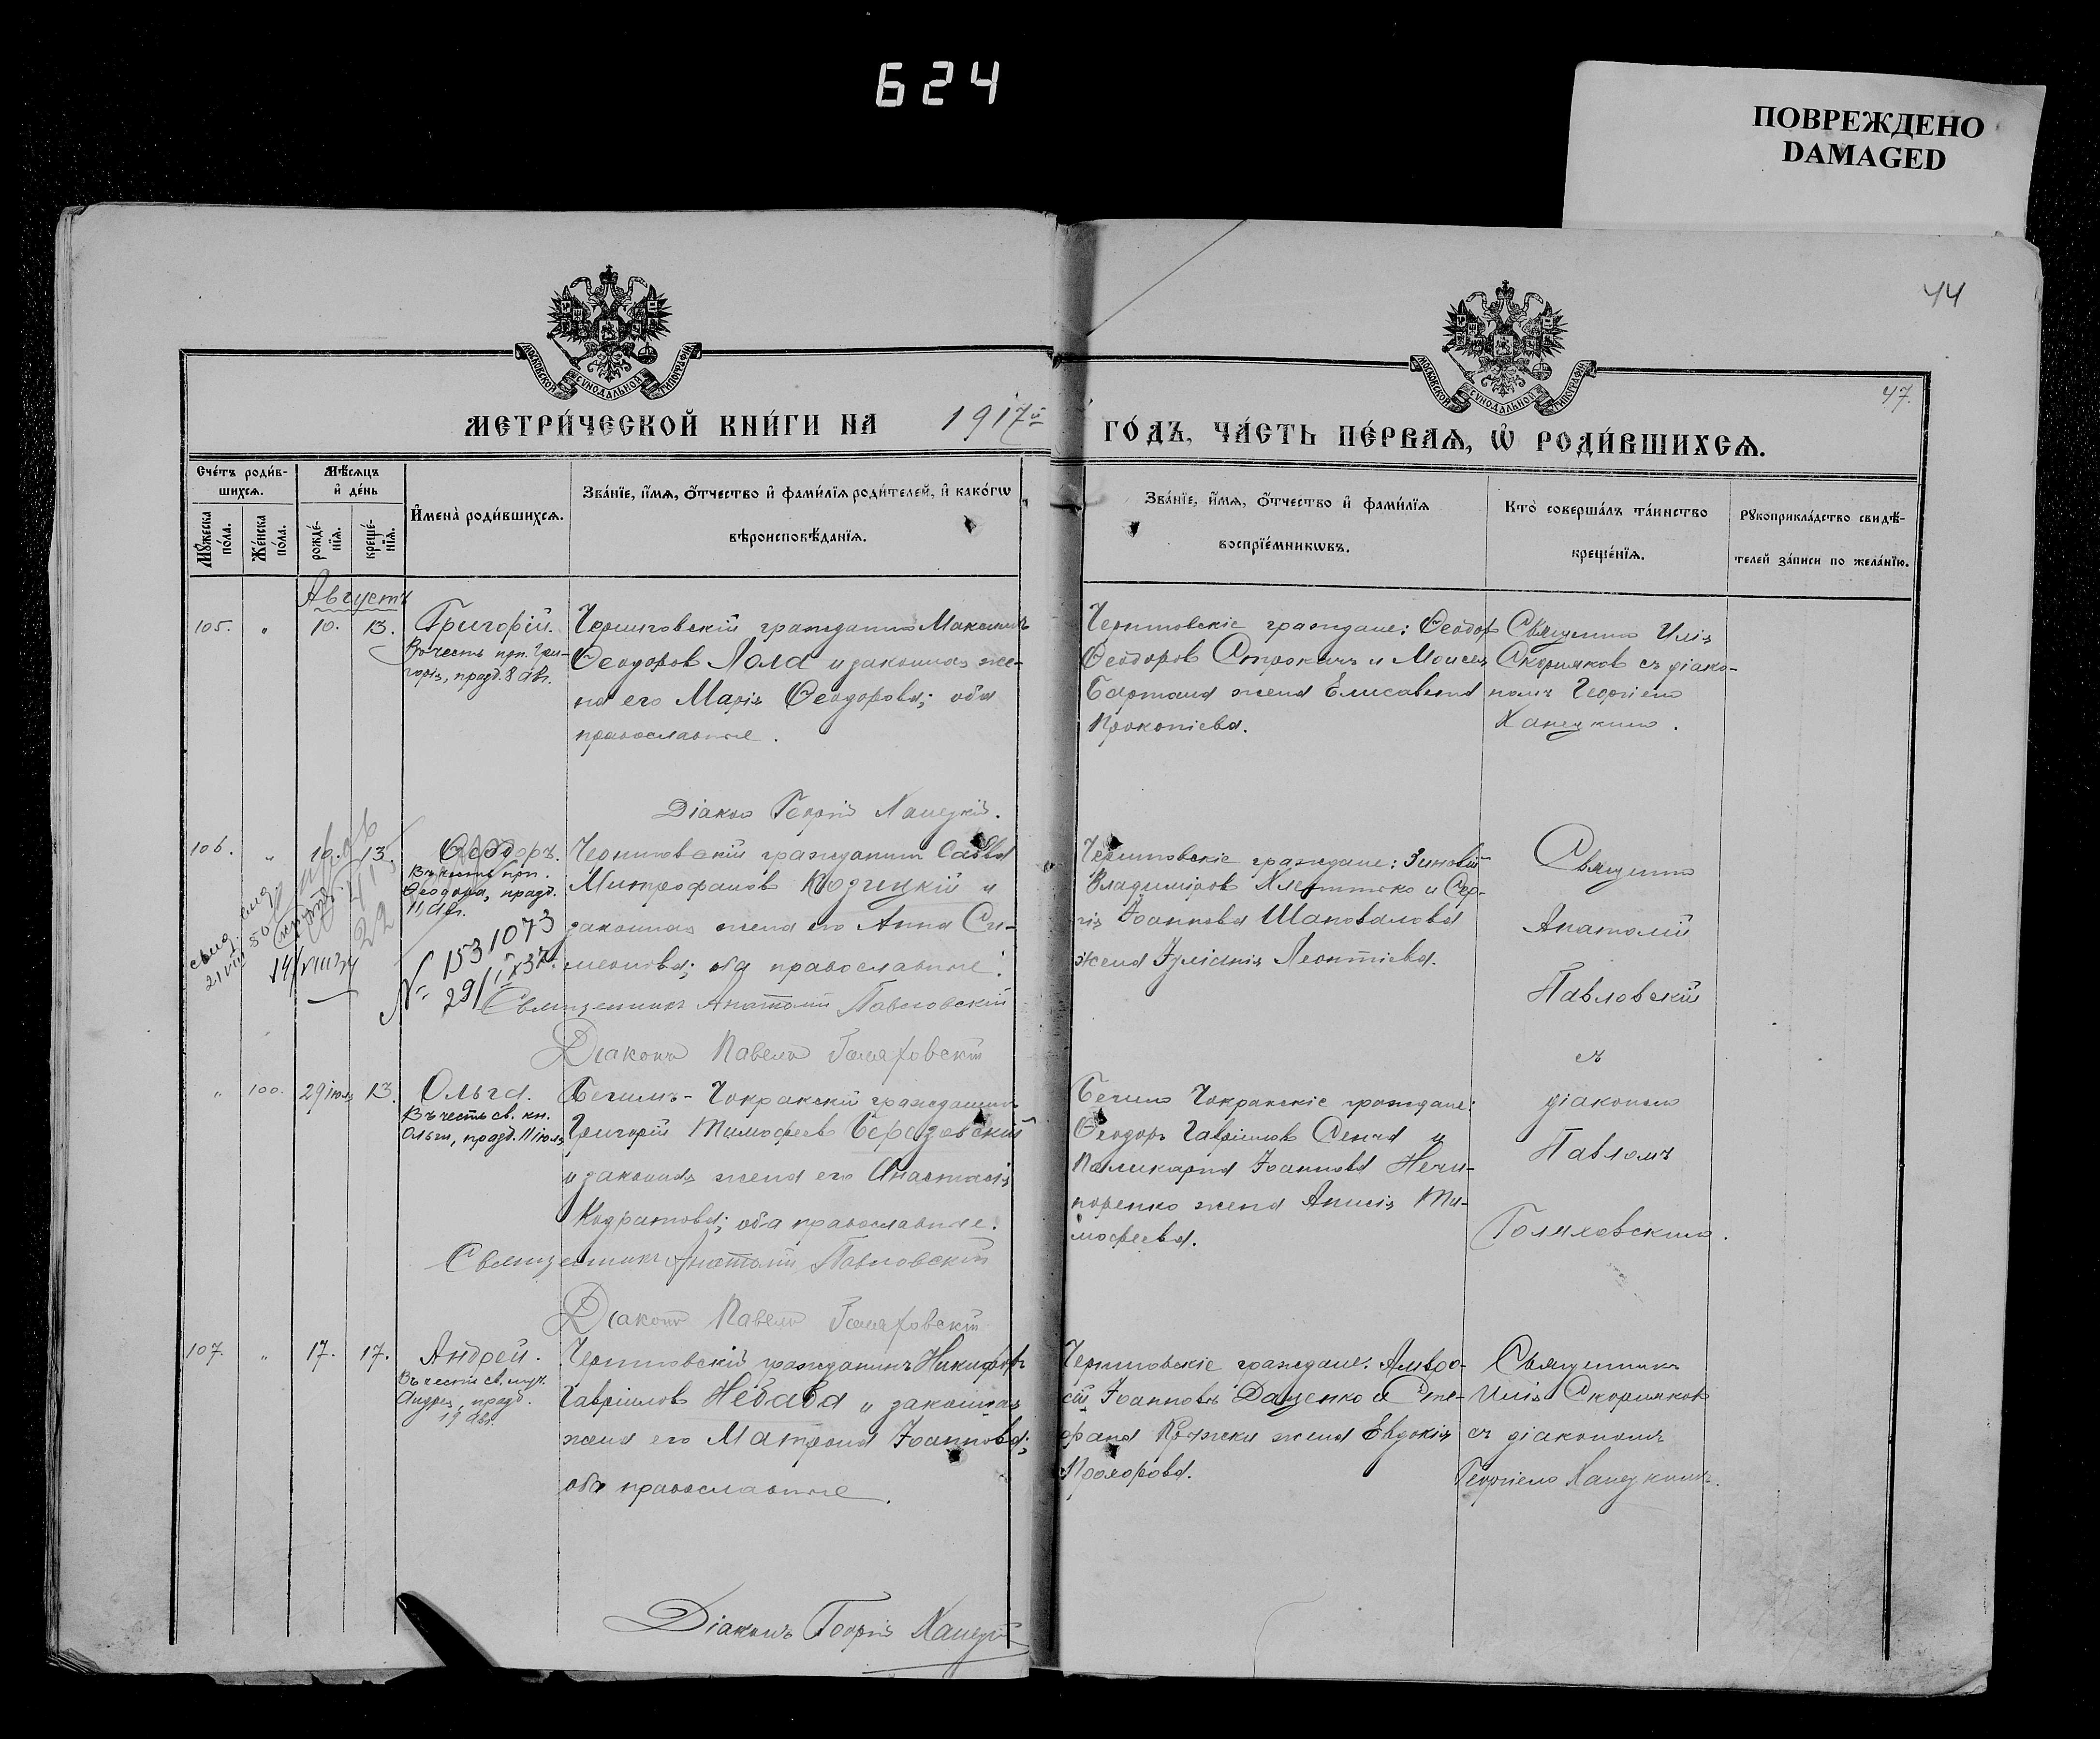 624
ПОВРЕЖДЕНО
DAMAGED
44
47.
МОСКОВСКОЙ СѴНОДАЛЬНОЙ ТИПОГРАФІИ
МОСКОВСКОЙ СѴНОДАЛЬНОЙ ТИПОГРАФІИ
МЕТРИ́ЧЕСКОЙ КНИ́ГИ НА 1917й
ГО́ДЪ, ЧА́СТЬ ПЕ́РВАѦ, Ѡ҆ РОДИ́ВШИХСѦ.
Сче́тъ роди́в-
шихсѧ.
Мѣ́сѧцъ
и҆ де́нь
Мꙋ́жеска по́ла.
Же́нска по́ла.
рожде́-
нїѧ.
креще́-
нїѧ.
И҆мена̀ роди́вшихсѧ.
Зва́нїе, и҆́мѧ, ѻ҆́тчество и҆ фами́лїѧ роди́телей, и҆ како́гѡ
вѣроисповѣ́данїѧ.
Зва́нїе, и҆́мѧ, ѻ҆́тчество и҆ фами́лїѧ
воспрїе́мникѡвъ.
Кто̀ соверша́лъ та́инство
креще́нїѧ.
Рꙋкоприкла́дство свидѣ́-
телей за́писи по жела́нїю.
Августъ
105. " 10. 13. Григорій.
Въ честь прп. Гри-
горія, празд. 8 Авг.
Черниговскій гражданинъ Максимъ
Ѳеодоровъ Лола и законная же-
на его Марія Ѳеодорова; оба
православные.
Діаконъ Георгій Ханецкій.
Черниговскіе граждане: Ѳеодоръ
Ѳеодоровъ Строкачъ и Моисея
жена Елисавета
Прокопіева.
Священникъ Илія
Скорняковъ съ діако-
номъ Георгіемъ
Ханецкимъ.
106. " 10. 13. Ѳеодоръ.
Въ честь прп.
Ѳеодора, празд.
11 Авг.
№ 1531073
29/IX 37
Черниговскій гражданинъ Савва
Митрофановъ Кодицкій и
законная жена его Анна Си-
меонова; оба православные.
Священникъ Анатолій Павловскій
Діаконъ Павелъ Голяховскій
Черниговскіе граждане: Зиновій
Владиміровъ и Сер-
гія Іоаннова Шаповалова
жена Іуліанія Леонтіева.
Священникъ
Анатолій
Павловскій
съ
діакономъ
Павломъ
Голяховскимъ.
" 100. 29 іюля 13. Ольга.
Въ честь св. кн.
Ольги, празд. 11 іюля
Бегимъ-Чокракскій гражданинъ
Григорій Тимофеевъ Березовскій
и законная жена его Анастасія
Кодратова; оба православные.
Священникъ Анатолій Павловскій
Діаконъ Павелъ Голяховскій
Бегимъ Чокракскіе граждане:
Ѳеодоръ Гавріиловъ Сенча и
Поликарпа Іоаннова Нечи-
поренко жена Анисія Ти-
мофеева.
107. " 17. 17. Андрей.
Въ честь св. муч.
Андрея, празд.
19 Авг.
Черниговскій гражданинъ Никифоръ
Гавріиловъ Небаба и законная
жена его Матрона Іоаннова;
оба православные.
Діаконъ Георгій Ханецкій
Черниговскіе граждане: Амвро-
сій Іоанновъ Даценко и Сте-
фана жена Евдокія
Прохорова.
Священникъ
Илія Скорняковъ
съ діакономъ
Георгіемъ Ханецкимъ.